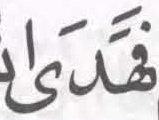 فَهَدَى